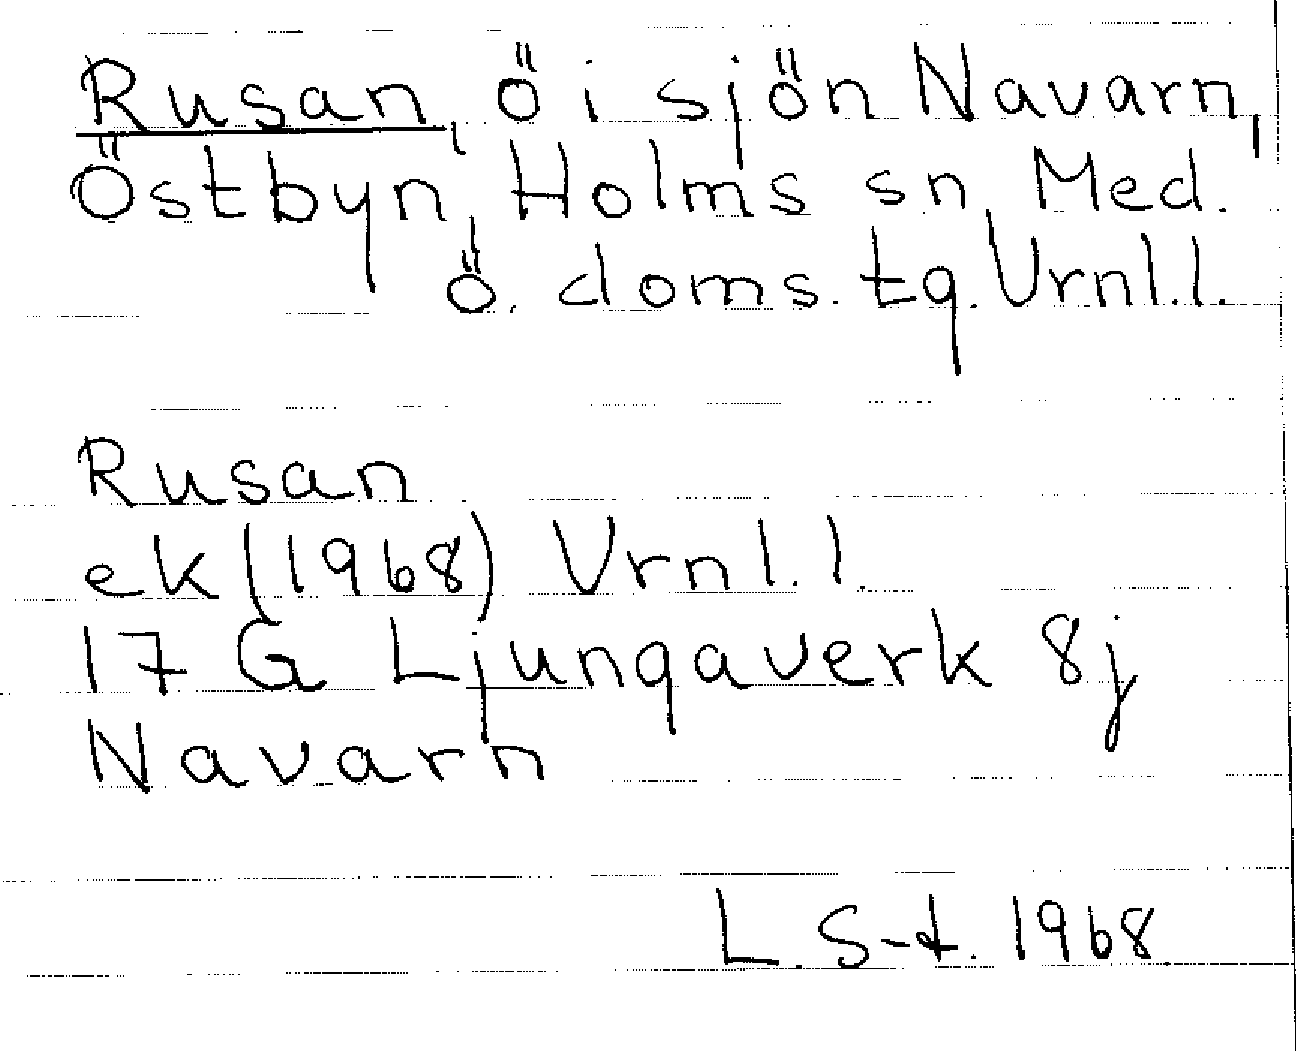 Rusan, ö i sjön Navarn,
Östbyn, Holms sn, Med.
ö. doms. tg. Vrnl.l.
Rusan
ek (1968) Vrnl.l.
17 G Ljungaverk 8j
Navarn
L. S-t. 1968